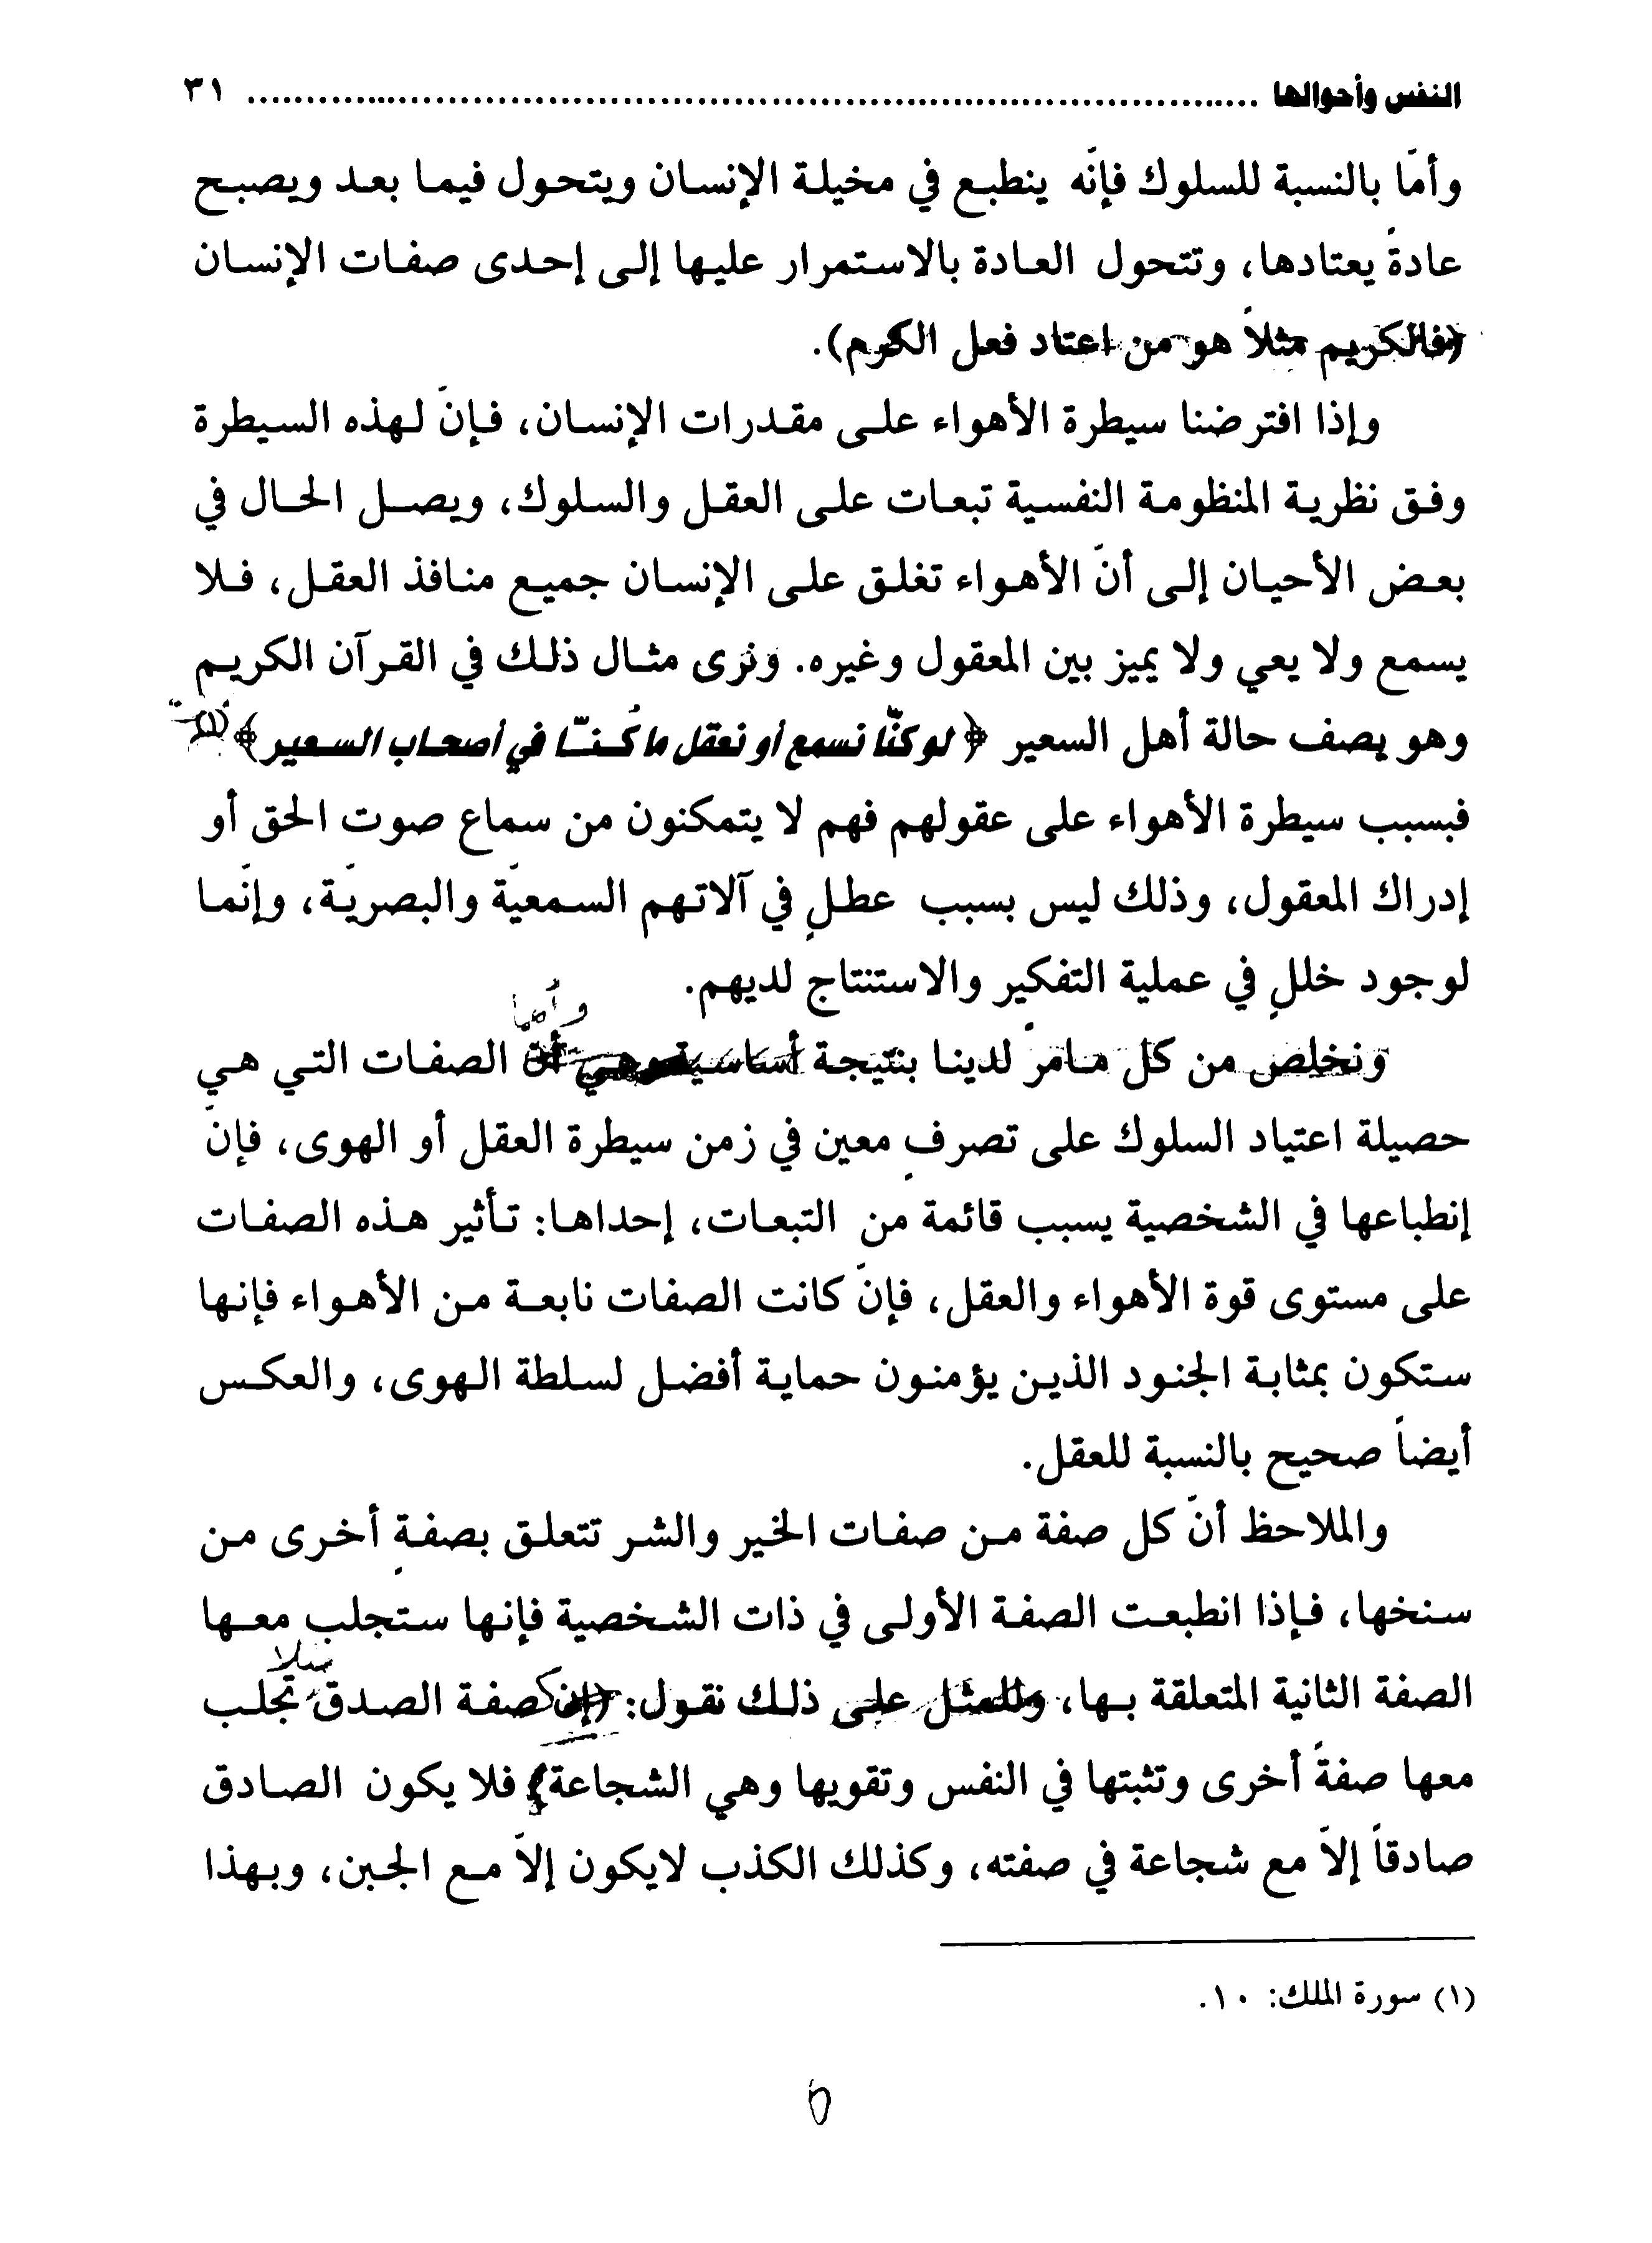 النفس وأحوالها ........................................ ٣١
وأمّا بالنسبة للسلوك فإنّه ينطبع في مخيلة الإنسان ويتحول فيما بعد ويصبح
عادةً يعتادها، وتتحول العادة بالاستمرار عليها إلى إحدى صفات الإنسان
(فالكريم مثلاً هو من اعتاد فعل الكرم).
وإذا افترضنا سيطرة الأهواء على مقدرات الإنسان، فإنّ لهذه السيطرة
وفق نظرية المنظومة النفسية تبعات على العقل والسلوك، ويصل الحال في
بعض الأحيان إلى أنّ الأهواء تغلق على الإنسان جميع منافذ العقل، فلا
يسمع ولا يعي ولا يميز بين المعقول وغيره. ونرى مثال ذلك في القرآن الكريم
وهو يصف حالة أهل السعير ﴿لو كنّا نسمع أو نعقل ما كُنّا في أصحاب السعير﴾(١)
فبسبب سيطرة الأهواء على عقولهم فهم لا يتمكنون من سماع صوت الحق أو
إدراك المعقول، وذلك ليس بسبب عطلٍ في آلاتهم السمعيّة والبصريّة، وإنّما
لوجود خللٍ في عملية التفكير والاستنتاج لديهم.
وأما
ونخلص من كل مامرّ لدينا بنتيجة أساسية وهي أنّ الصفات التي هي
حصيلة اعتياد السلوك على تصرفٍ معين في زمن سيطرة العقل أو الهوى، فإنّ
إنطباعها في الشخصية يسبب قائمة من التبعات، إحداها: تأثير هذه الصفات
على مستوى قوة الأهواء والعقل، فإنّ كانت الصفات نابعة من الأهواء فإنها
ستكون بمثابة الجنود الذين يؤمنون حماية أفضل لسلطة الهوى، والعكس
أيضاً صحيح بالنسبة للعقل.
والملاحظ أنّ كل صفة من صفات الخير والشر تتعلق بصفةٍ أخرى من
سنخها، فإذا انطبعت الصفة الأولى في ذات الشخصية فإنها ستجلب معها
الصفة الثانية المتعلقة بها، وللمثل على ذلك نقول: (إن صفة الصدق تجلب
معها صفةً أخرى وتثبتها في النفس وتقويها وهي الشجاعة) فلا يكون الصادق
صادقاً إلاّ مع شجاعة في صفته، وكذلك الكذب لايكون إلاّ مع الجبن، وبهذا
(١) سورة الملك: ١٠.